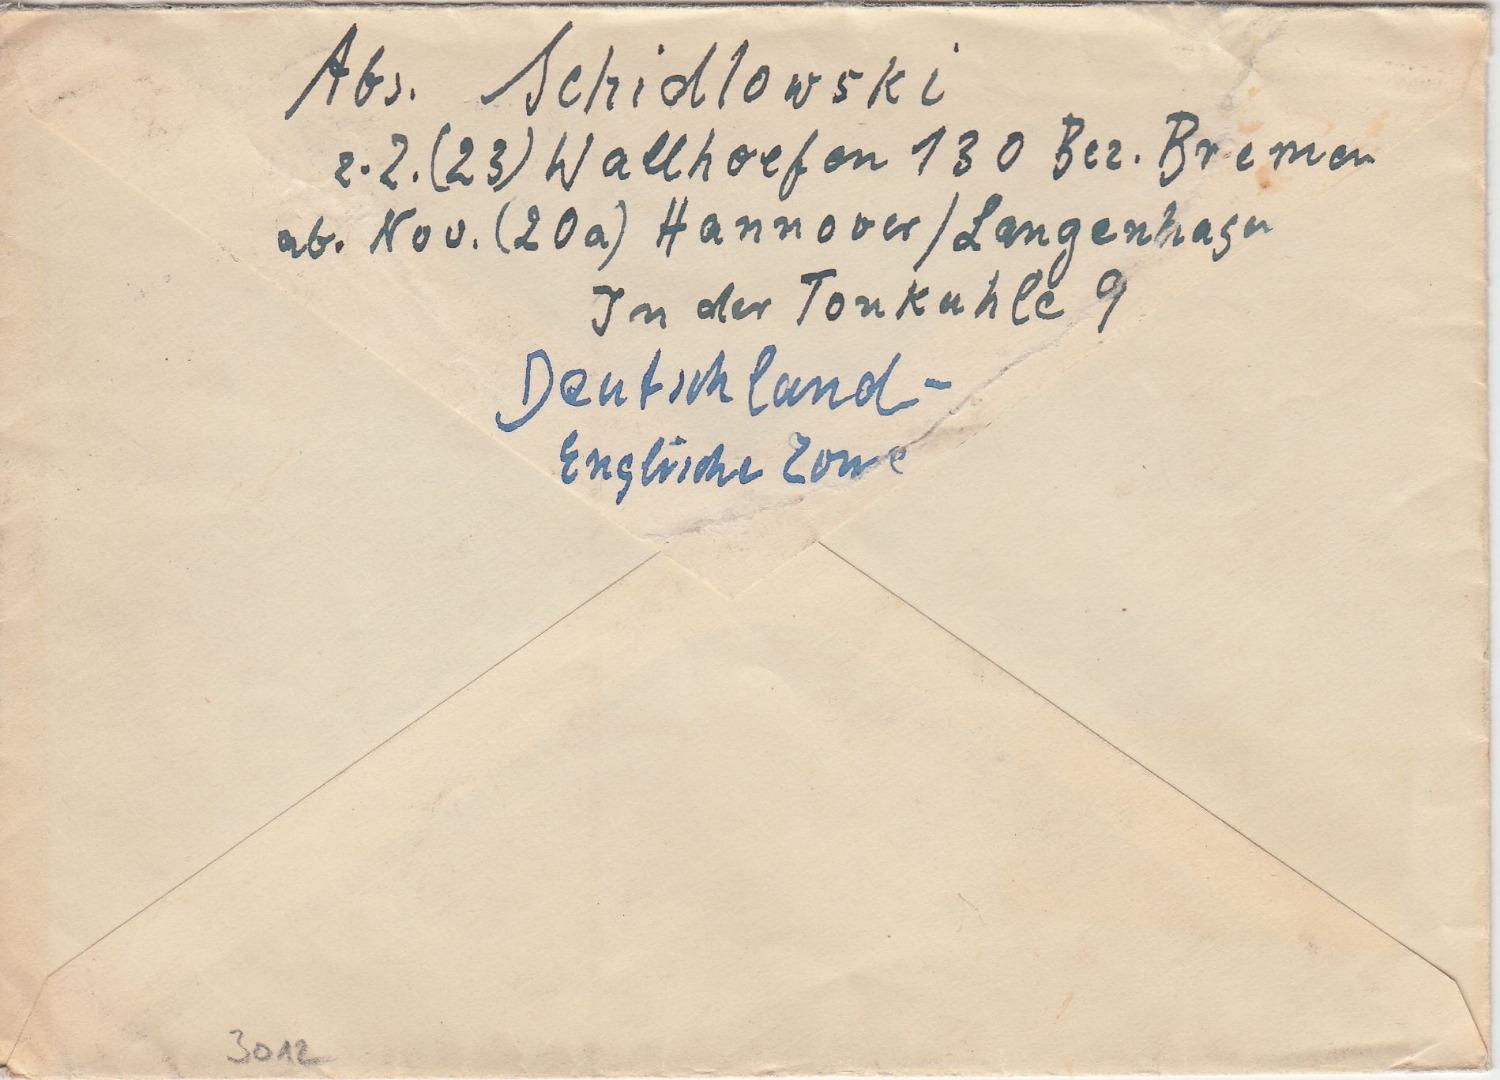 Abs. Schidlowski
z.Z. (23) Wallhoefen 130 Bez. Bremen
ab. Nov. (20a) Hannover/Langenhagen
In der Tonkuhle 9
Deutschland-
Englische Zone
3012